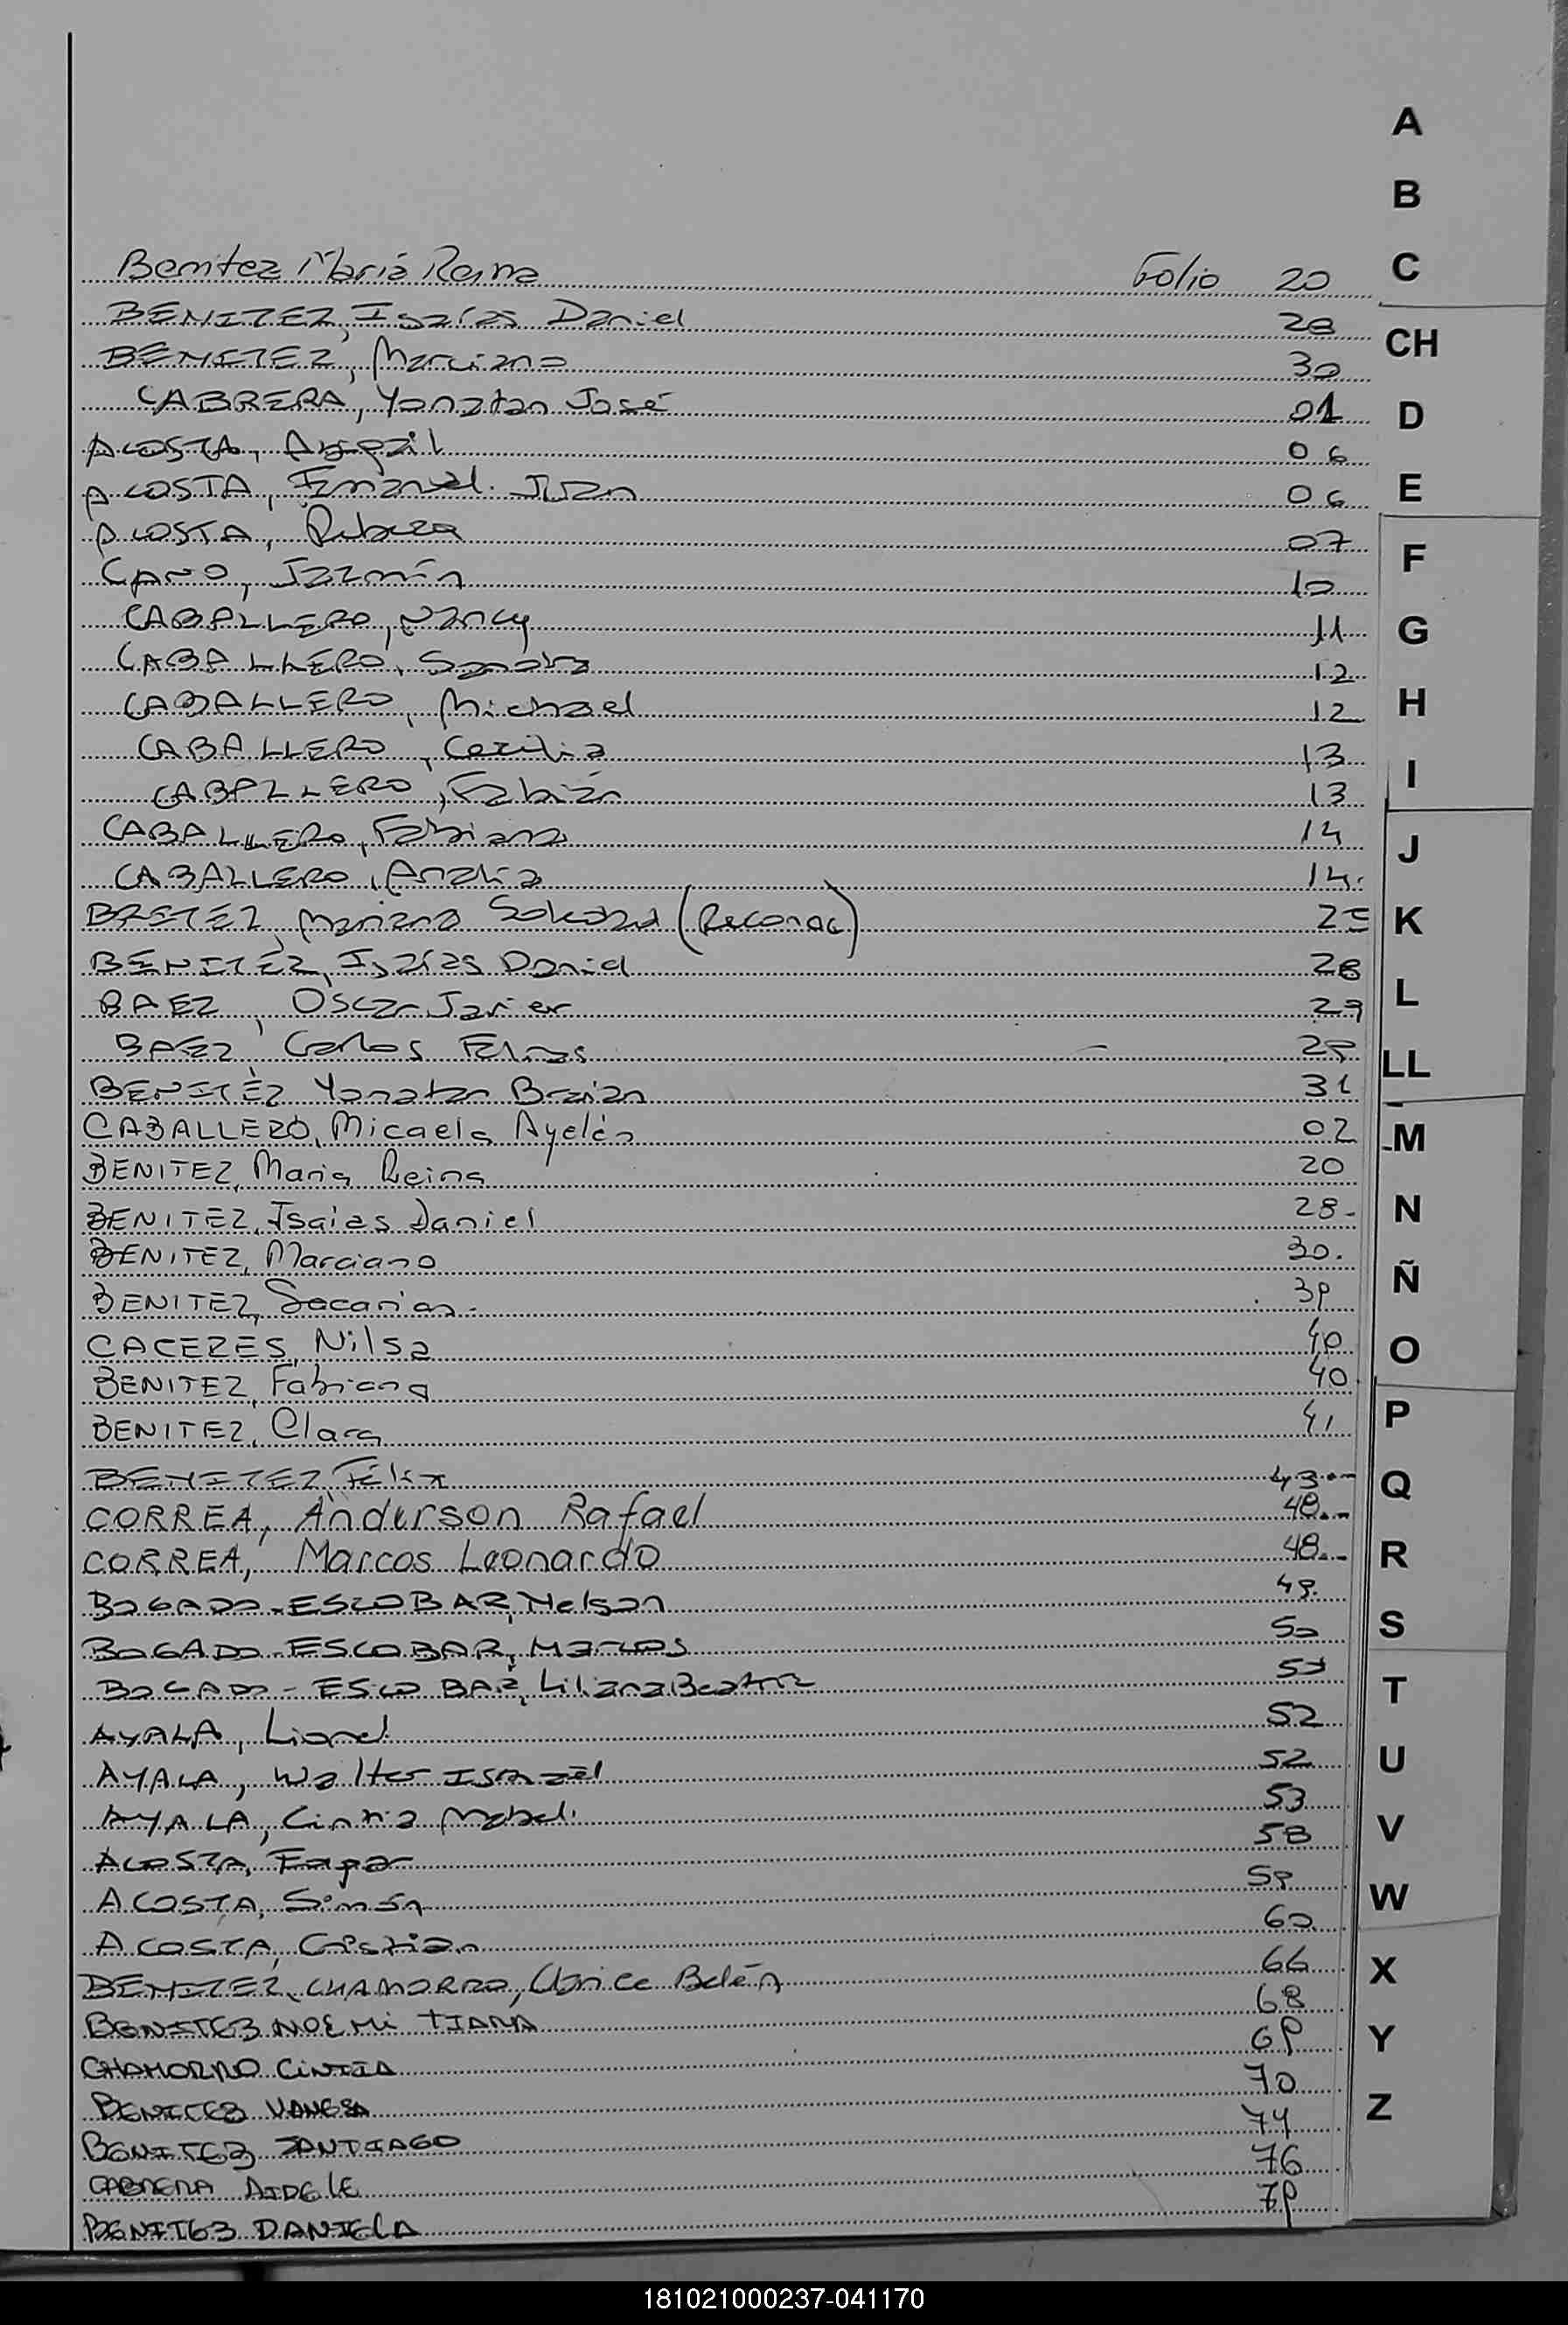 Benitez Maria Reina Folio 20
BENITEZ, Isaías Daniel 28
BENITEZ, Marciano 30
CABRERA, Yonatan José 01
ACOSTA, Abigail 06
ACOSTA, Emanuel Juan 06
ACOSTA, Rebeca 07
CANO, Jazmín 10
CABALLERO, Nancy 11
CABALLERO, Sandra 12
CABALLERO, Michael 12
CABALLERO, Cecilia 13
CABALLERO, Fabián 13
CABALLERO, Fabiana 14
CABALLERO, Analia 14.
BRITEZ, Mariana Soledad (Reconoc)
BENITEZ, Isaías Daniel 28
BAEZ, Oscar Javier 29
BAEZ, Carlos 29
BENITEZ Yonatan Braian 31
CABALLERO, Micaela Ayelén 02
BENITEZ, Maria Reina 20
BENITEZ, Isaias Daniel 28-
BENITEZ, Marciano 30.
BENITEZ, Sacarias. 39
CACERES, Nilsa 40
BENITEZ, Fabiana 40
BENITEZ, Clara 41
BENITEZ, Félix 43
CORREA, Anderson Rafael 48
CORREA, Marcos Leonardo 48
BOGADO-ESCOBAR, Nelson 49
BOGADO-ESCOBAR, Marcos 50
BOGADO-ESCOBAR, Liliana Beatriz 51
AYALA, Lionel 52
AYALA, Walter ISRAel 52
AYALA, Cintia Mabel 53
ACOSTA, 58
ACOSTA, Simón 59
ACOSTA, Cristian 60
BENITEZ, CHAMORRO, Clarice Belén 66
BENITEZ NOEMI TIARA 68
CHAMORRO CINTIA 69
BENITEZ VANESA 70
BENITEZ SANTIAGO 74
CABRERA AIDELE 76
BENITEZ DANIELA 79
A
B
C
CH
D
E
F
G
H
I
J
K
L
LL
M
N
Ñ
O
P
Q
R
S
T
U
V
W
X
Y
Z
181021000237-041170